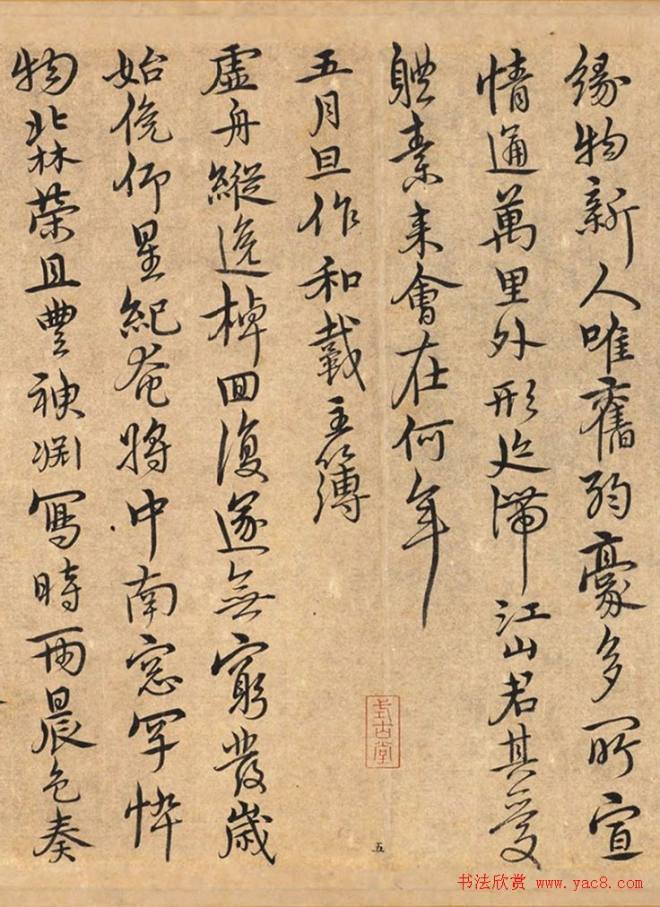 緣物新人唯舊弱豪多所宣
情通萬里外形迹滯江山君其愛
體素来會在何年
五月旦作和戴主簿
虛舟縱逸棹回復遂無窮發歲
始俛仰星紀奄將中南窓罕悴
物北林榮且豐神渊寫時雨晨色奏
式古堂
五
书法欣赏 www.yac8.com